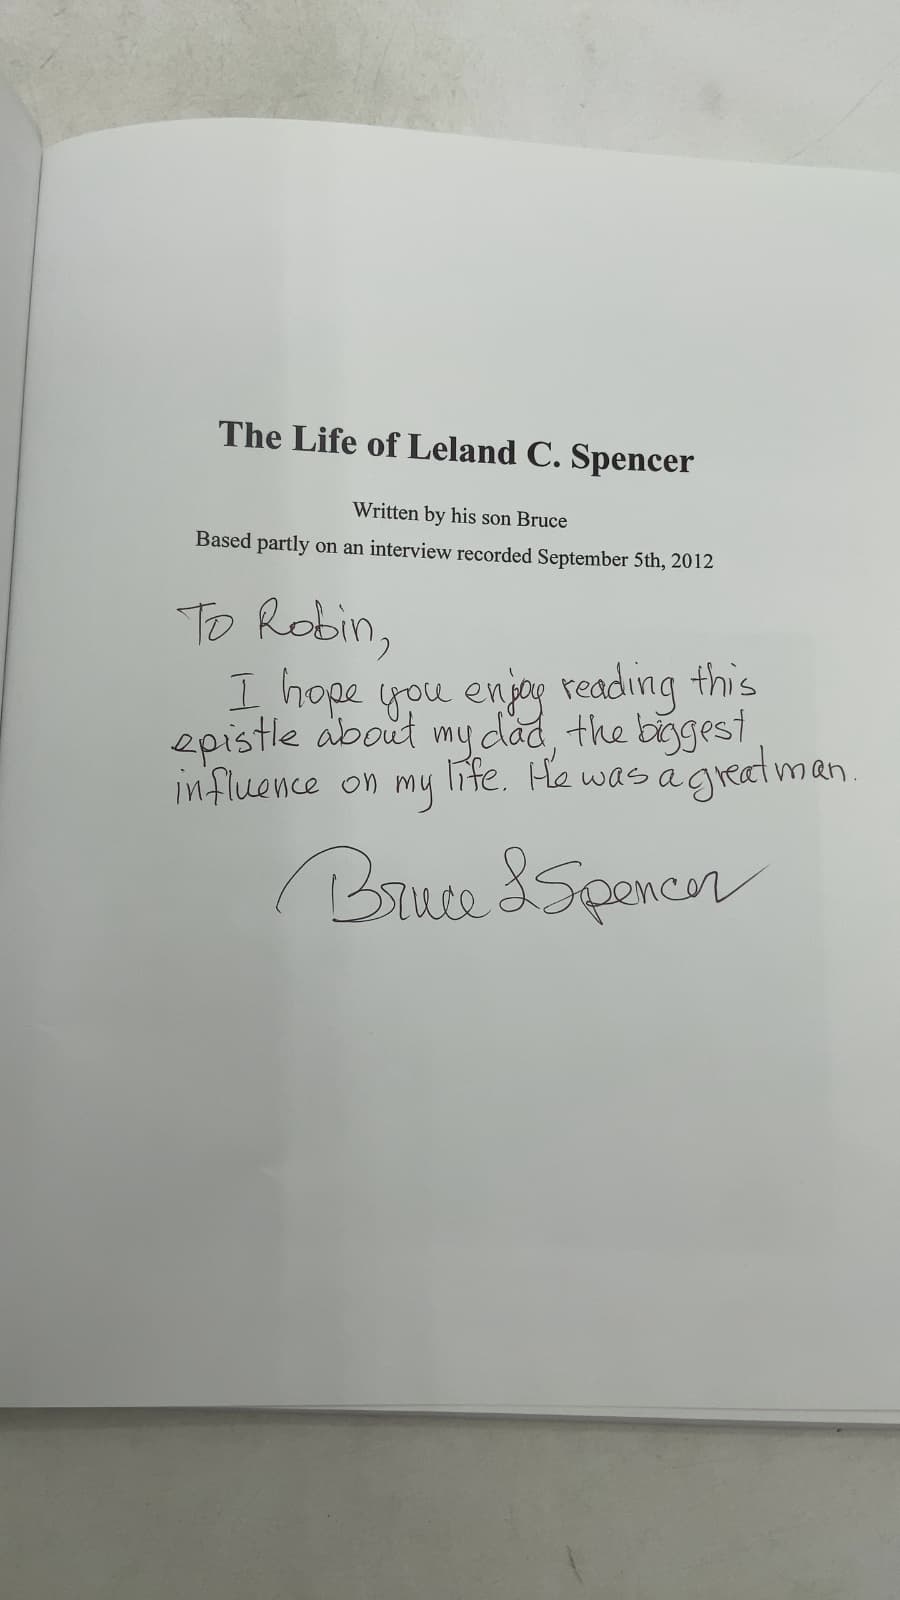 The Life of Leland C. Spencer
Written by his son Bruce
Based partly on an interview recorded September 5th, 2012
To Robin,
I hope you enjoy reading this
epistle about my dad, the biggest
influence on my life. He was a great man.
Bruce L Spencer